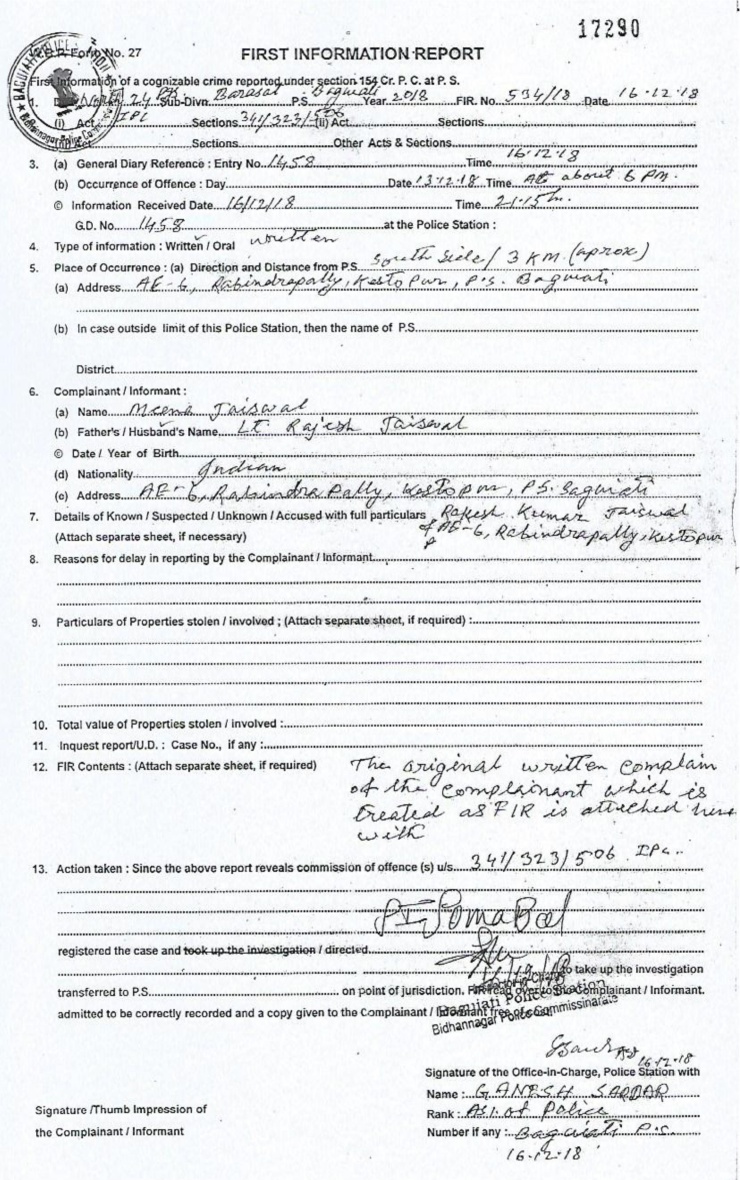 17290
Form No. 27
FIRST INFORMATION REPORT
First Information of a cognizable crime reported under section 154 Cr. P. C. at P. S.
1. 24 Sub-Divn. Barasat P.S. Baguiati Year 2018 FIR. No. 594/18 Date 16.12.18
(i) Act IPC Sections 341/323/506 (ii) Act Sections
Sections Other Acts & Sections
3. (a) General Diary Reference : Entry No. 1458 Time 16.12.18
(b) Occurrence of Offence : Day Date 13.12.18 Time At about 6 PM.
© Information Received Date 16/12/18 Time 21.15 hr.
G.D. No. 1458 at the Police Station :
4. Type of information : Written / Oral written
5. Place of Occurrence : (a) Direction and Distance from P.S. South Side / 3 KM. (aprox)
(a) Address AE-6, Rabindrapally, Kestopur, P.S. Baguiati
(b) In case outside limit of this Police Station, then the name of P.S.
District
6. Complainant / Informant :
(a) Name Meena Jaiswal
(b) Father's / Husband's Name Lt. Rajesh Jaiswal
© Date / Year of Birth
(d) Nationality Indian
(e) Address AE-6, Rabindra Pally, Kestopur, P.S. Baguiati
7. Details of Known / Suspected / Unknown / Accused with full particulars Rakesh Kumar Jaiswal
(Attach separate sheet, if necessary) of AE-6, Rabindrapally, Kestopur
8. Reasons for delay in reporting by the Complainant / Informant
9. Particulars of Properties stolen / involved ; (Attach separate sheet, if required) :
10. Total value of Properties stolen / involved :
11. Inquest report/U.D. : Case No., if any :
12. FIR Contents : (Attach separate sheet, if required) The original written complain
of the complainant which is
treated as FIR is attached here
with
13. Action taken : Since the above report reveals commission of offence (s) u/s. 341/323/506 IPC.
PSI Soma Bal
registered the case and took up the investigation / directed
to take up the investigation
transferred to P.S. on point of jurisdiction. FIR read over to the Complainant / Informant.
Baguiati Police Station
admitted to be correctly recorded and a copy given to the Complainant / Informant free of cost.
Bidhannagar Police Commissinarate
16.12.18
Signature of the Office-in-Charge, Police Station with
Name : GANESH SARDAR
Signature /Thumb Impression of
Rank : ASI. of Police
the Complainant / Informant
Number if any : Baguiati P.S.
16.12.18